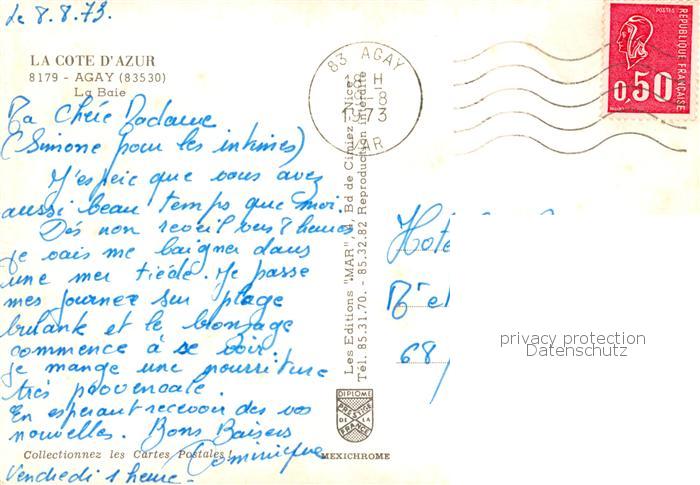 Le 8.8.73.
LA COTE D'AZUR
8179 - AGAY (83530)
La Baie
Ma Chére Madame
(Simone pour les intimes)
J'espeie que vous avez
aussi beau temps que moi.
Dés mon reveil vers 8 heures
je vais me baigner dans
une mer tiéde. Je passe
mes journez sur plage
brulante et le bronzage
commence à se voir!
je mange une nourriture
trés provencale.
En esperant recevoir des vos
nouvelles. Bons Baisers
Dominique
Collectionnez les Cartes Postales !
Vendredi 1 heure-
Les Editions "MAR", Bd de Cimiez Nice
Tél. 85.31.70. - 85.32.82 Reproduction Interdite
83 AGAY
H
-8
1973
VAR
POSTES
REPUBLIQUE FRANÇAISE
0,50
Hote
68
privacy protection
Datenschutz
DIPLOME
PRESTIGE
DE LA
FRANCE
MEXICHROME